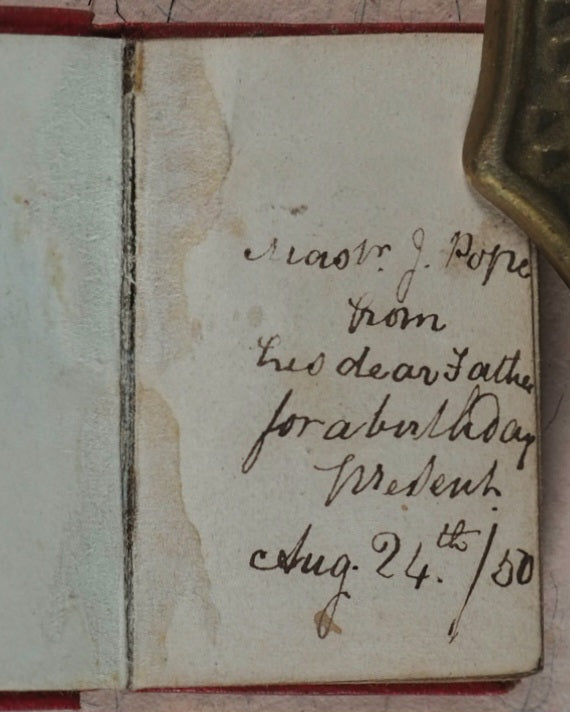 Mastr. J. Pope
from
his dear Father
for a birthday
present.
Aug. 24.th /50